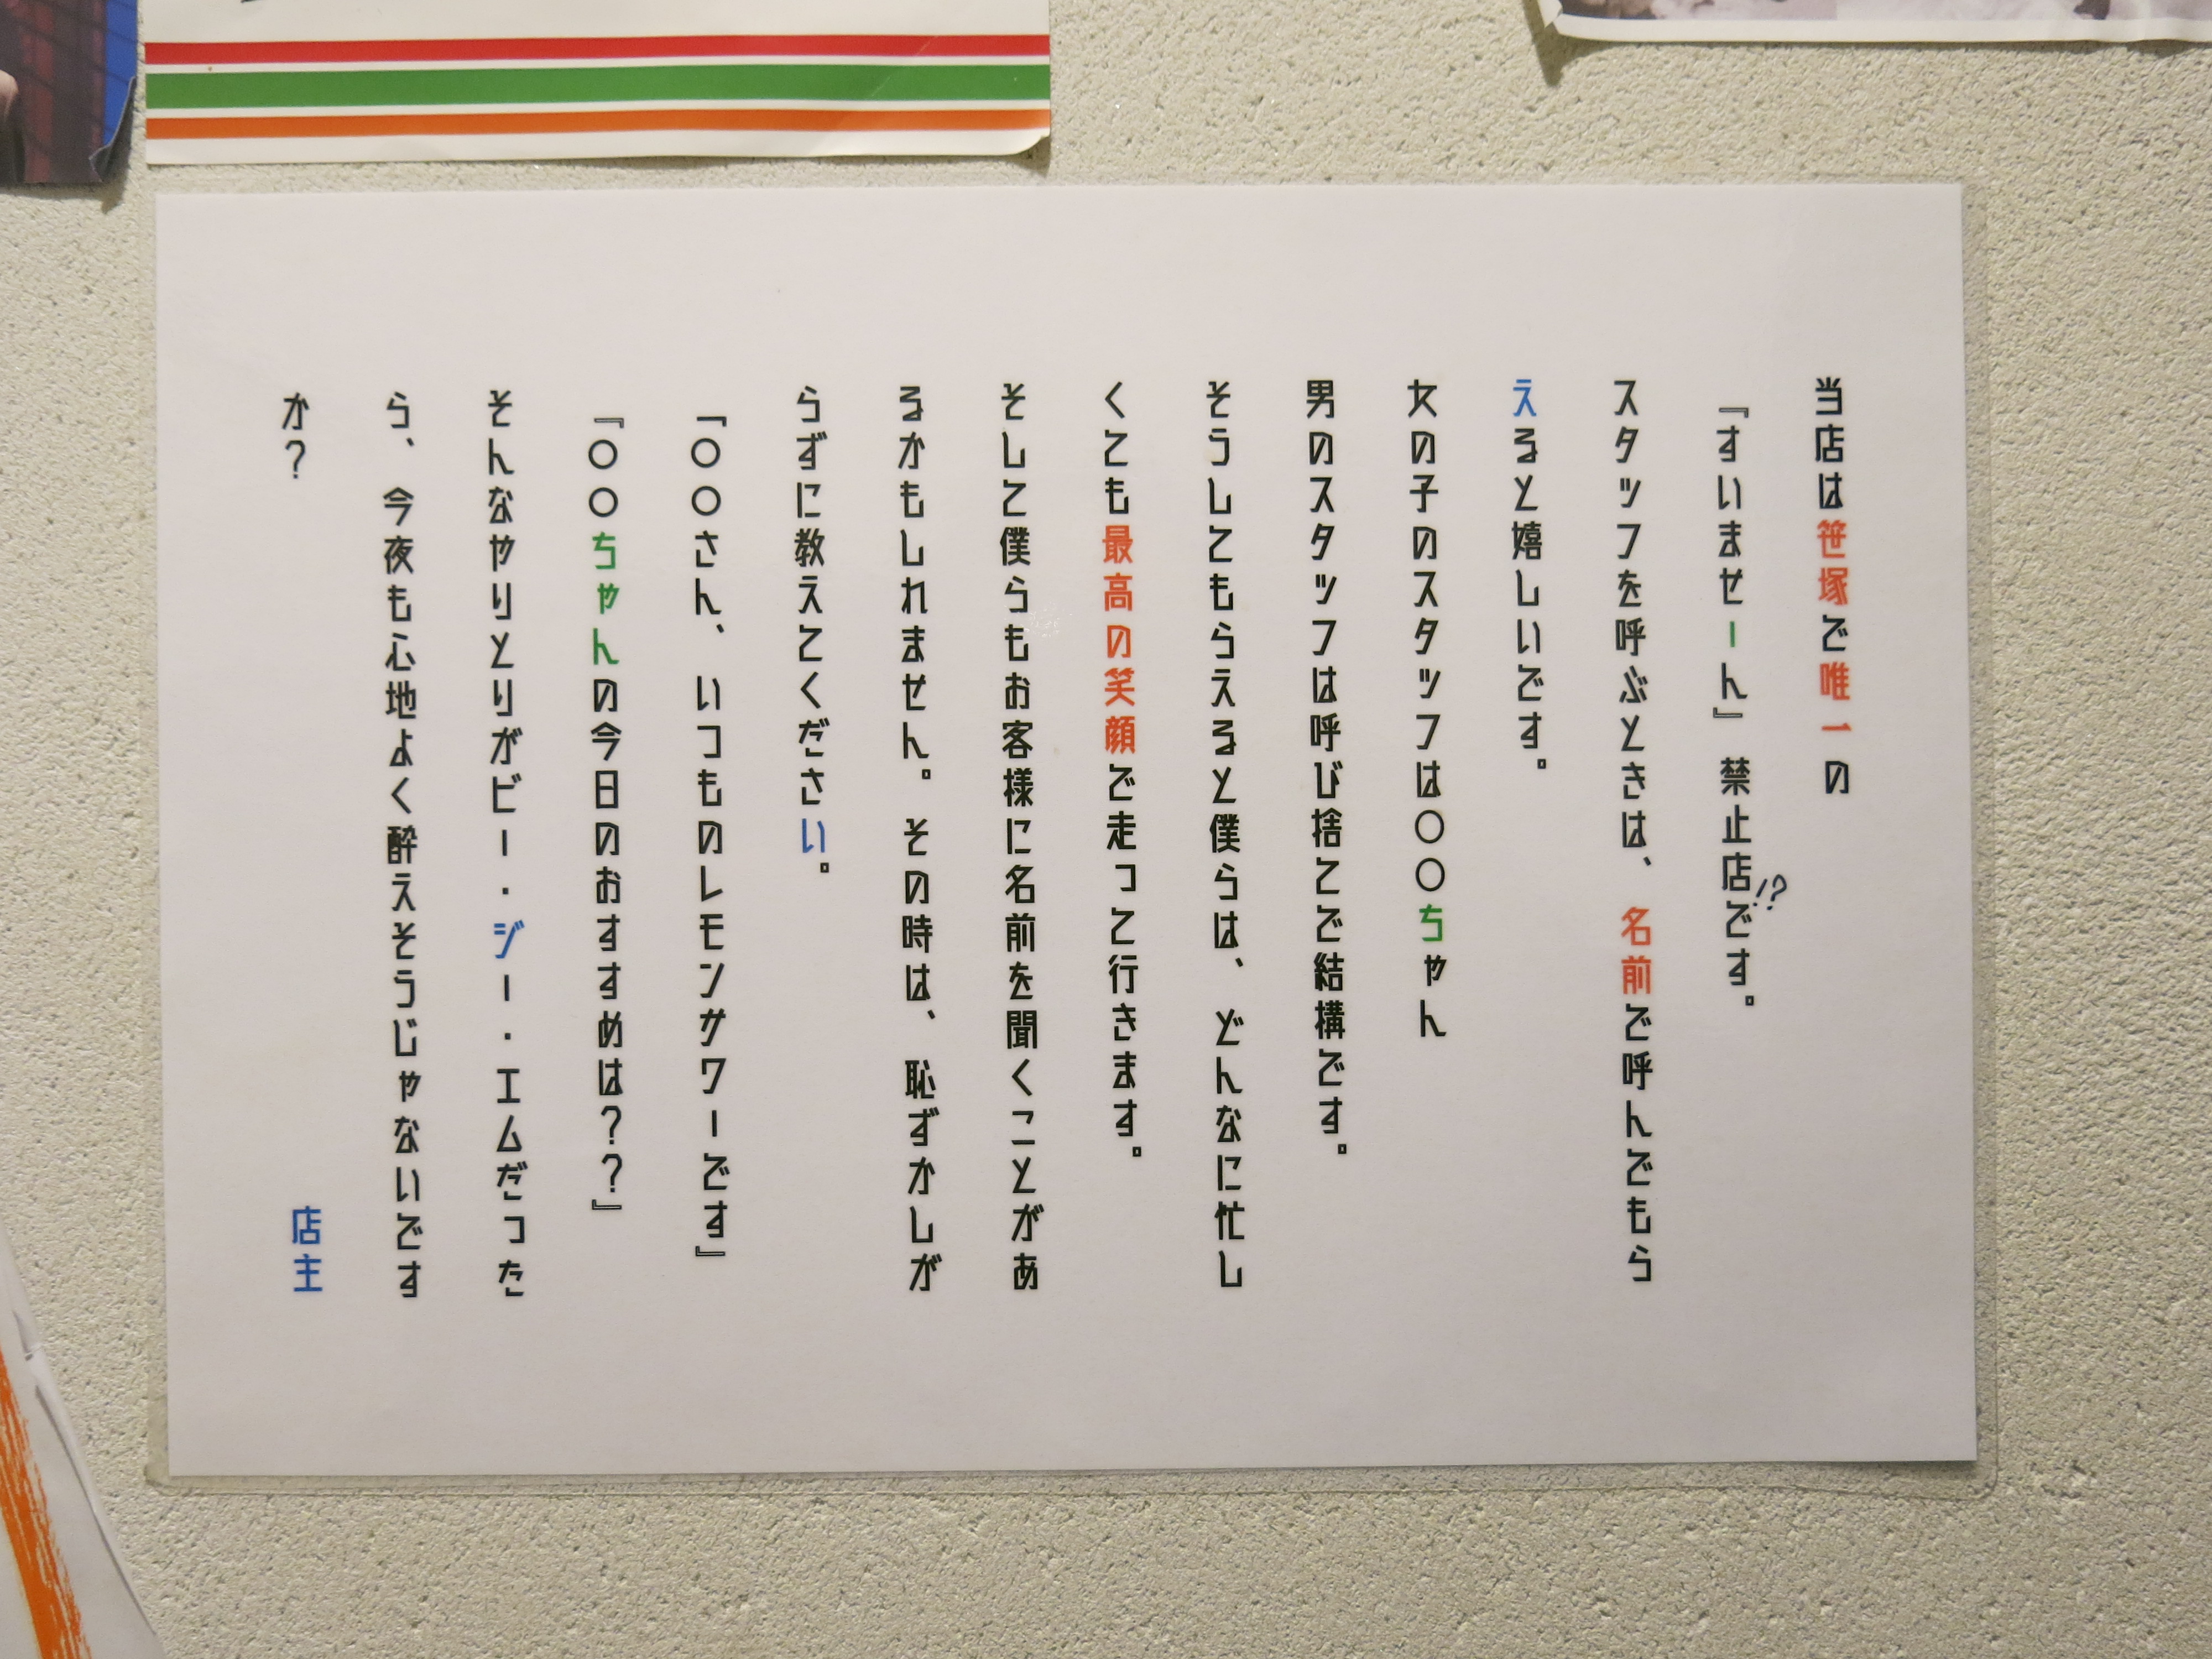 当店は笹塚で唯一の
『すいませーん』禁止店です。
!?
スタッフを呼ぶときは、名前で呼んでもら
えると嬉しいです。
女の子のスタッフは〇〇ちゃん
男のスタッフは呼び捨てで結構です。
そうしてもらえると僕らは、どんなに忙し
くても最高の笑顔で走って行きます。
そして僕らもお客様に名前を聞くことがあ
るかもしれません。その時は、恥ずかしが
らずに教えてください。
「〇〇さん、いつものレモンサワーです』
『〇〇ちゃんの今日のおすすめは？？』
そんなやりとりがビー・ジー・エムだった
ら、今夜も心地よく酔えそうじゃないです
か？
店主